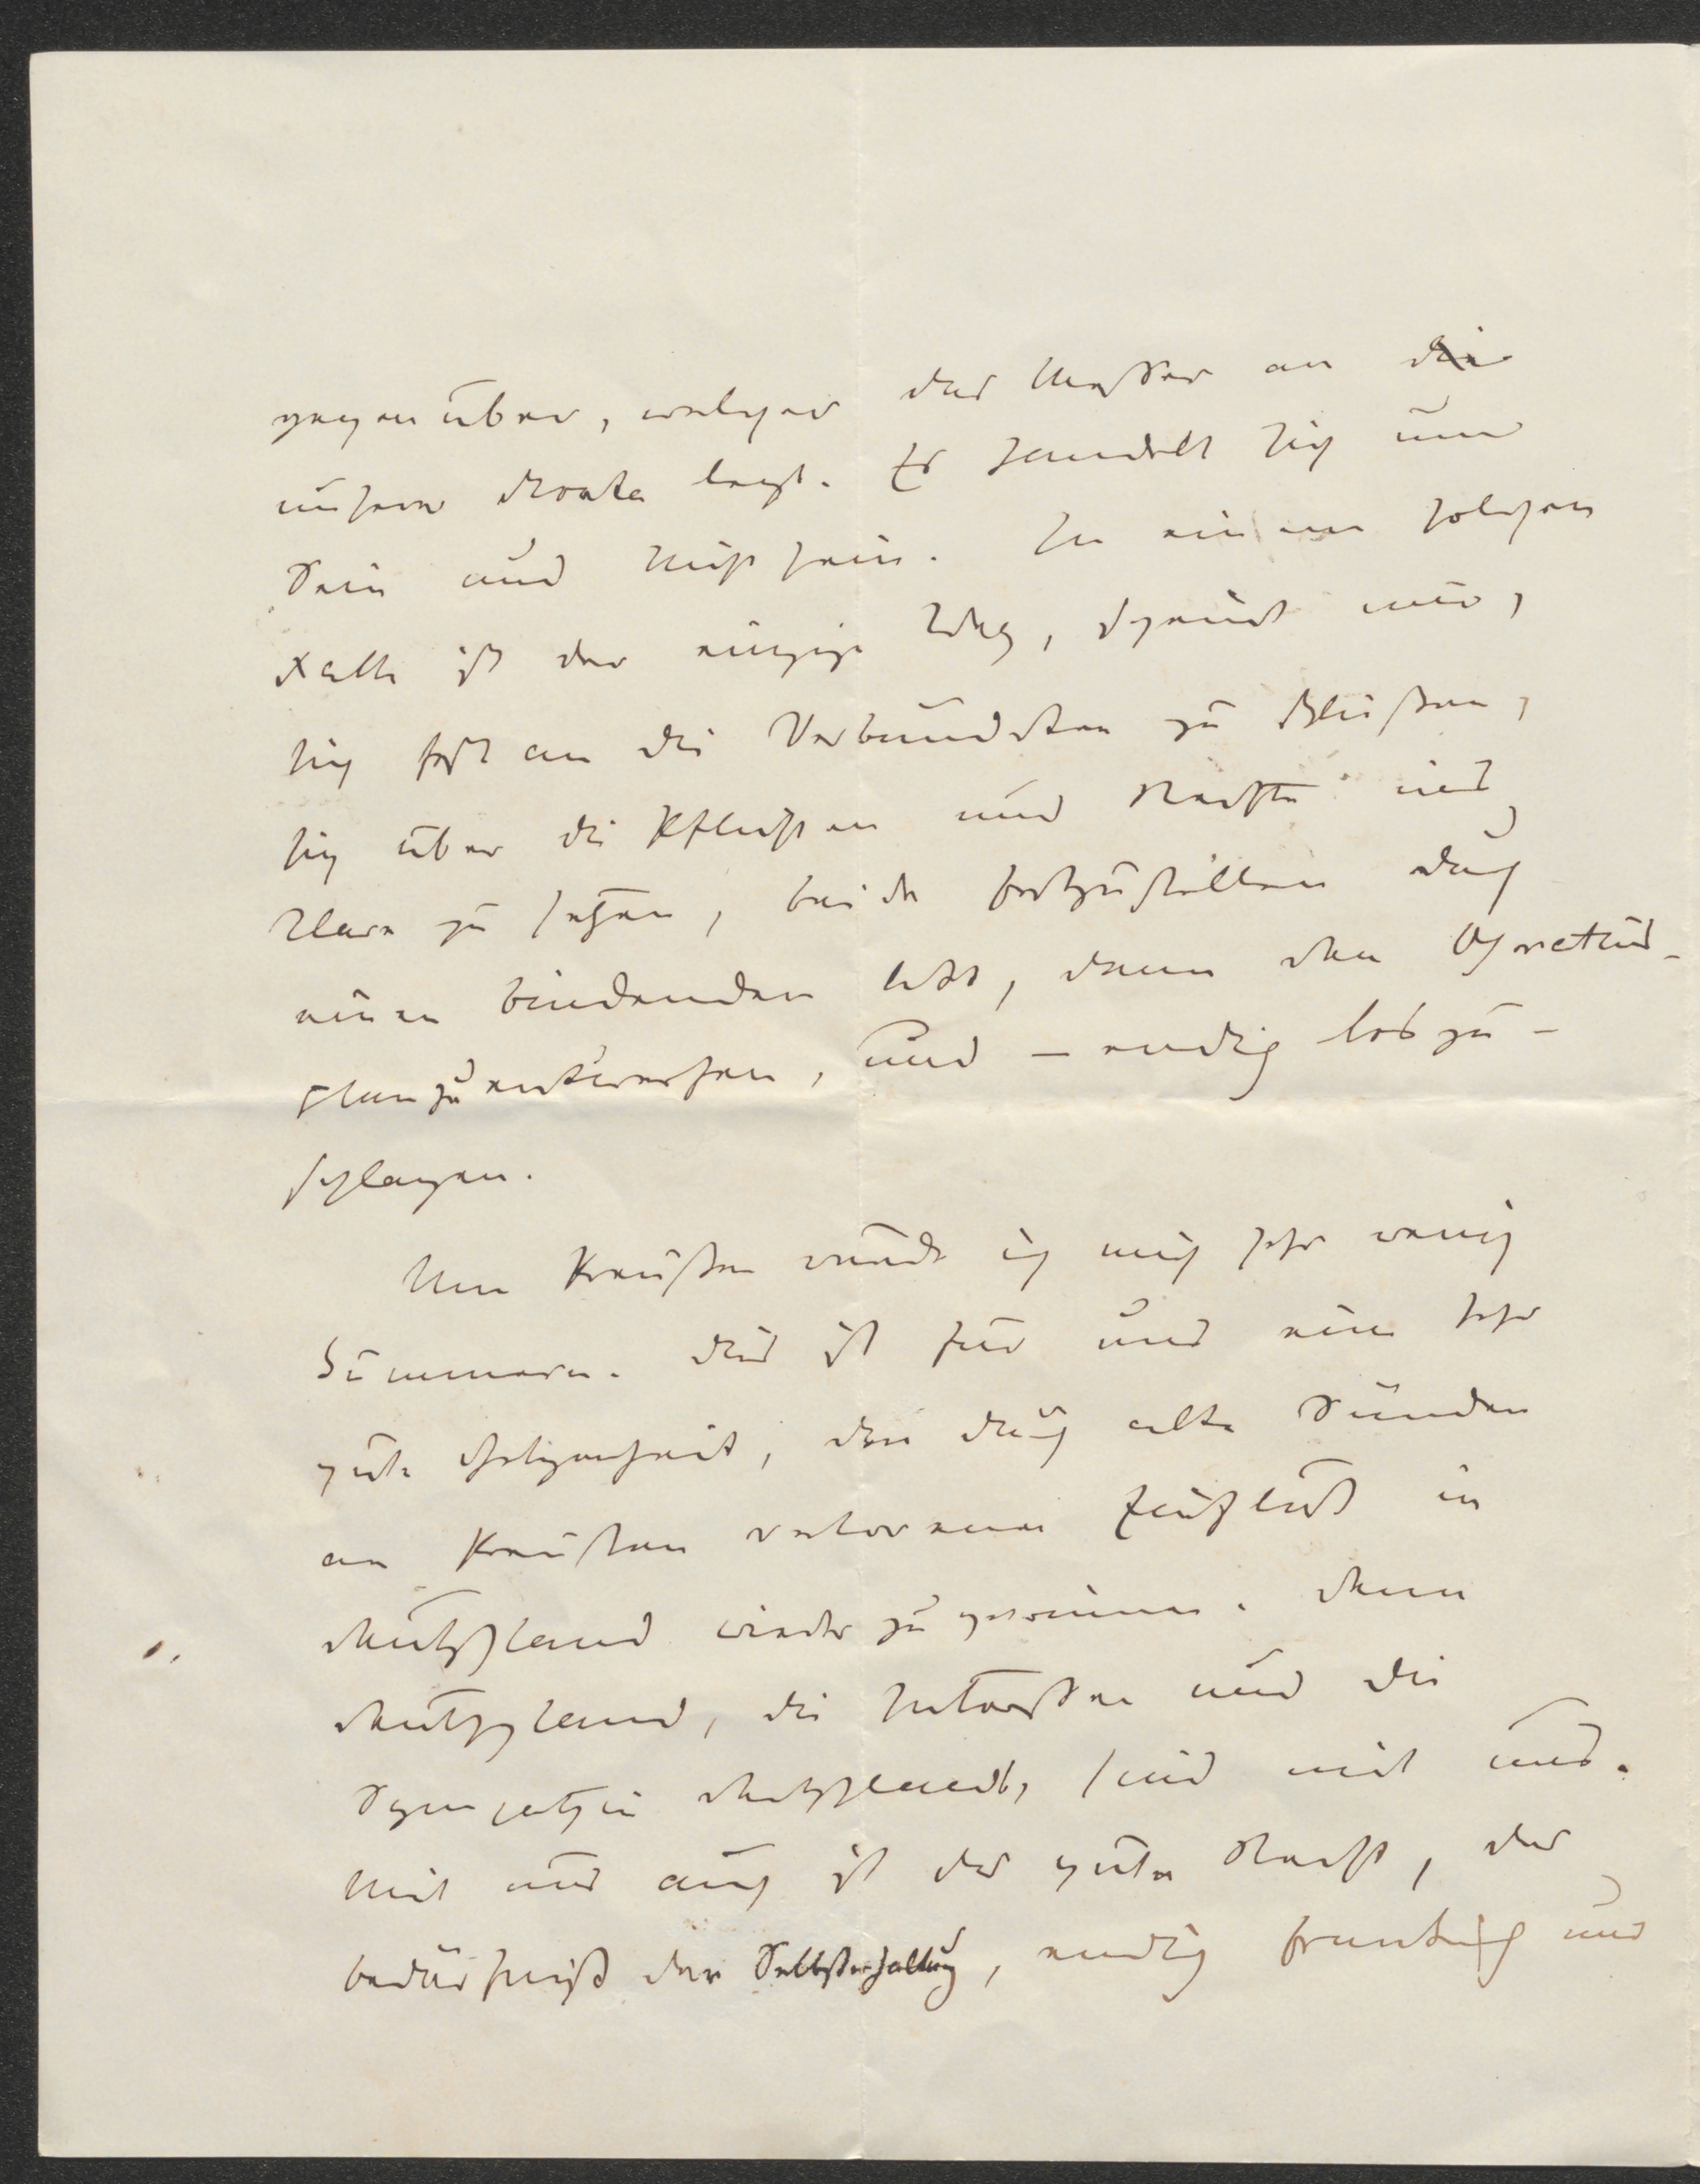 gegenüber, welcher das Messer an die
unsere Kräfte legt. Es handelt sich um
Sein und Nichtsein. In einem solchen
Falle ist der einzige Weg, scheint mir,
sich fest an die Verbündeten zu schließen,
sich über die Pflichten und Rechte ins
Klare zu setzen, beide festzustellen durch
einen bindenden Akt, dann den Operations-
plan zu entwerfen, und – ruhig loszu-
schlagen.
Um Preußen würde ich mich sehr wenig
kümmern. Dies ist für uns eine sehr
gute Gelegenheit, den durch alte Sünden
an Preußen verlorenen Einfluß in
Deutschland wieder zu gewinnen. Denn
Deutschland, die Interessen und die
Sympathien Deutschlands, sind mit uns.
Mit uns auch ist das gute Recht, das
Bedürfniß der Selbsterhaltung, ruhig und